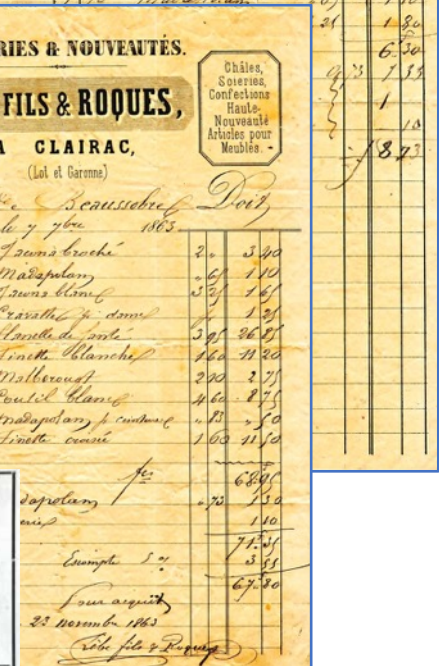 RIES & NOUVEAUTÉS.
FILS & ROQUES,
A CLAIRAC,
(Lot et Garonne)
Châles,
Soieries,
Confections
Haute-
Nouveauté
Articles pour
Meubles.
Beaussobre Doit
le 7 7bre 1863
Jaconas broché 2 " 3 40
Madapolam " 65 1 10
Jaconas blanc 3 25 1 65
Cravatte pr dame 1 25
flanelle de santé 3 95 26 85
Finette blanche 1 60 11 20
Malborough 2 90 2 75
Coutil blanc 4 60 8 75
madapolam p. ceinture " 83 " 50
Finette croisée 1 60 11 50
fcs 68 95
dapolam " 73 1 30
1 10
71 35
Escompte 5 % 3 55
67 80
Pour acquit
23 novembre 1863
fils & Roques
1 80
6 30
1
10